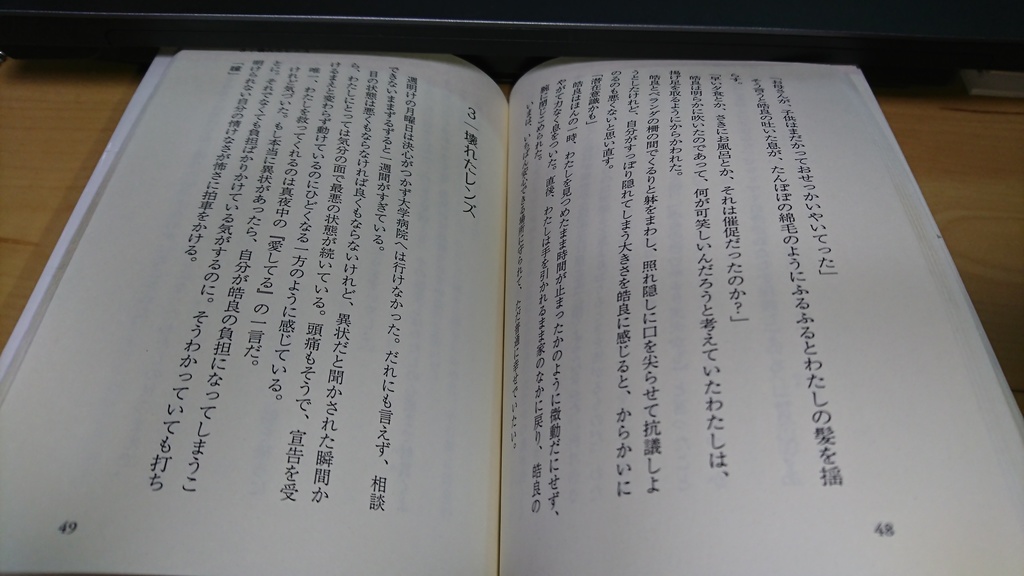 「お母さんが、子供はまだかっておせっかいやいてった」
そう言う皓良の吐いた息が、たんぽぽの綿毛のようにふるふるとわたしの髪を揺
「早く夕食とか、さきにお風呂とか、それは催促だったのか?」
皓良は明らかに吹いたのであって、何が可笑しいんだろうと考えていたわたしは、
揚げ足を取るようにからかわれた。
皓良とベランダの柵の間でくるりと躰をまわし、照れ隠しに口を尖らせて抗議しよ
うとしたけれど、自分がすっぽり隠れてしまう大きさを皓良に感じると、からかいに
のるのも悪くないと思い直す。
「潜在意識かも」
皓良はほんの一時、わたしを見つめたまま時間が止まったかのように微動だにせず、
やがて小さく息をついた。直後、わたしは手を引かれるまま家のなかに戻り、皓良の
腕に閉じこめられた。
いまは、いちばん安心できる場所に守られて、ただ普通に幸せでいたい。
48
3 壊れたレンズ
週明けの月曜日は決心がつかず大学病院へは行けなかった。だれにも言えず、相談
できないままずるずると一週間がすぎている。
目の状態は悪くもならなければ良くもならないけれど、異状だと聞かされた瞬間か
ら、わたしにとっては気分の面で最悪の状態が続いている。頭痛もそうで、宣告を受
けるまえと変わらず動けているのにひどくなる一方のように感じている。
唯一、わたしを救ってくれるのは真夜中の『愛してる』の一言だ。
けれど気づいた。もし本当に異状があったら、自分が皓良の負担になってしまうこ
とに。それでなくても負担ばかりかけている気がするのに。そうわかっていても打ち
明けられない自分の情けなさが怖さに拍車をかける。
49